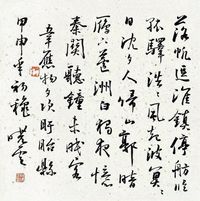 落帆逗淮鎮停舫臨
孤驛浩々風起波冥々
日沉夕人歸山郭暗
雁下蘆洲白獨夜憶
秦關聽鐘未眠客
韋應物夕次盱眙縣
甲申